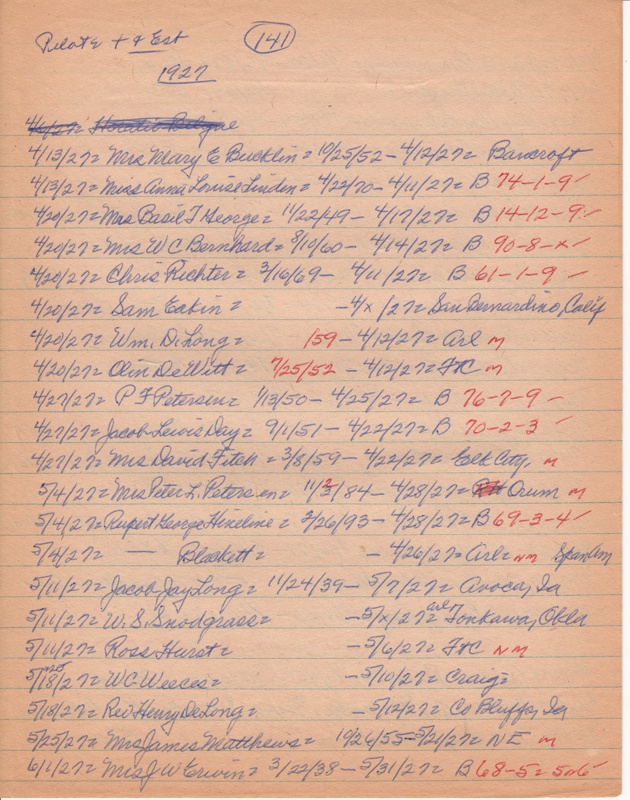 Pilot & + & Est (141)
1927
4/13/27= Mrs Mary E Bucklin= 10/25/52 - 4/12/27= Bancroft
4/13/27= Miss Anna Louise Linden= 4/22/70 - 4/11/27= B 74-1-9
4/20/27= Mrs Basil T George= 11/22/49 - 4/17/27= B 14-12-9
4/20/27= Mrs W C Bernhard= 8/10/60 - 4/14/27= B 90-8-x
4/20/27= Chris Richter= 3/16/69 - 4/11/27= B 61-1-9
4/20/27= Sam Eakin= -4/x/27= San Bernardino, Calif
4/20/27= Wm. D. Long= /59 - 4/12/27= Arl M
4/20/27= Olin DeWitt= 7/25/52 - 4/12/27= FtC M
4/27/27= P F Petersen= 1/13/50 - 4/25/27= B 76-7-9
4/27/27= Jacob Lewis Day= 9/1/51 - 4/22/27= B 70-2-3
4/27/27= Mrs David Fitch= 3/8/59 - 4/22/27= Elk City, M
5/4/27= Mrs Peter L. Petersen= 11/2/84 - 4/28/27= Orum M
5/4/27= Rupert George Hineline= 2/26/93 - 4/28/27= B 69-3-4
5/4/27= — Blackett= - 4/26/27= Arl= NM Span Am
5/11/27= Jacob Jay Long= 11/24/39 - 5/7/27= Avoca, Ia
5/11/27= W. S. Snodgrass= -5/x/27= Arl Tonkawa, Okla
5/11/27= Ross Hurst= -5/6/27= FtC NM
5/18/27= W C Weeces= -5/10/27= Craig=
5/18/27= Rev Henry DeLong= -5/12/27= Co Bluffs, Ia
5/25/27= Mrs James Matthews= 10/26/55 - 5/21/27= NE M
6/1/27= Mrs J W Erwin= 3/22/38 - 5/31/27= B 68-5= 5or6